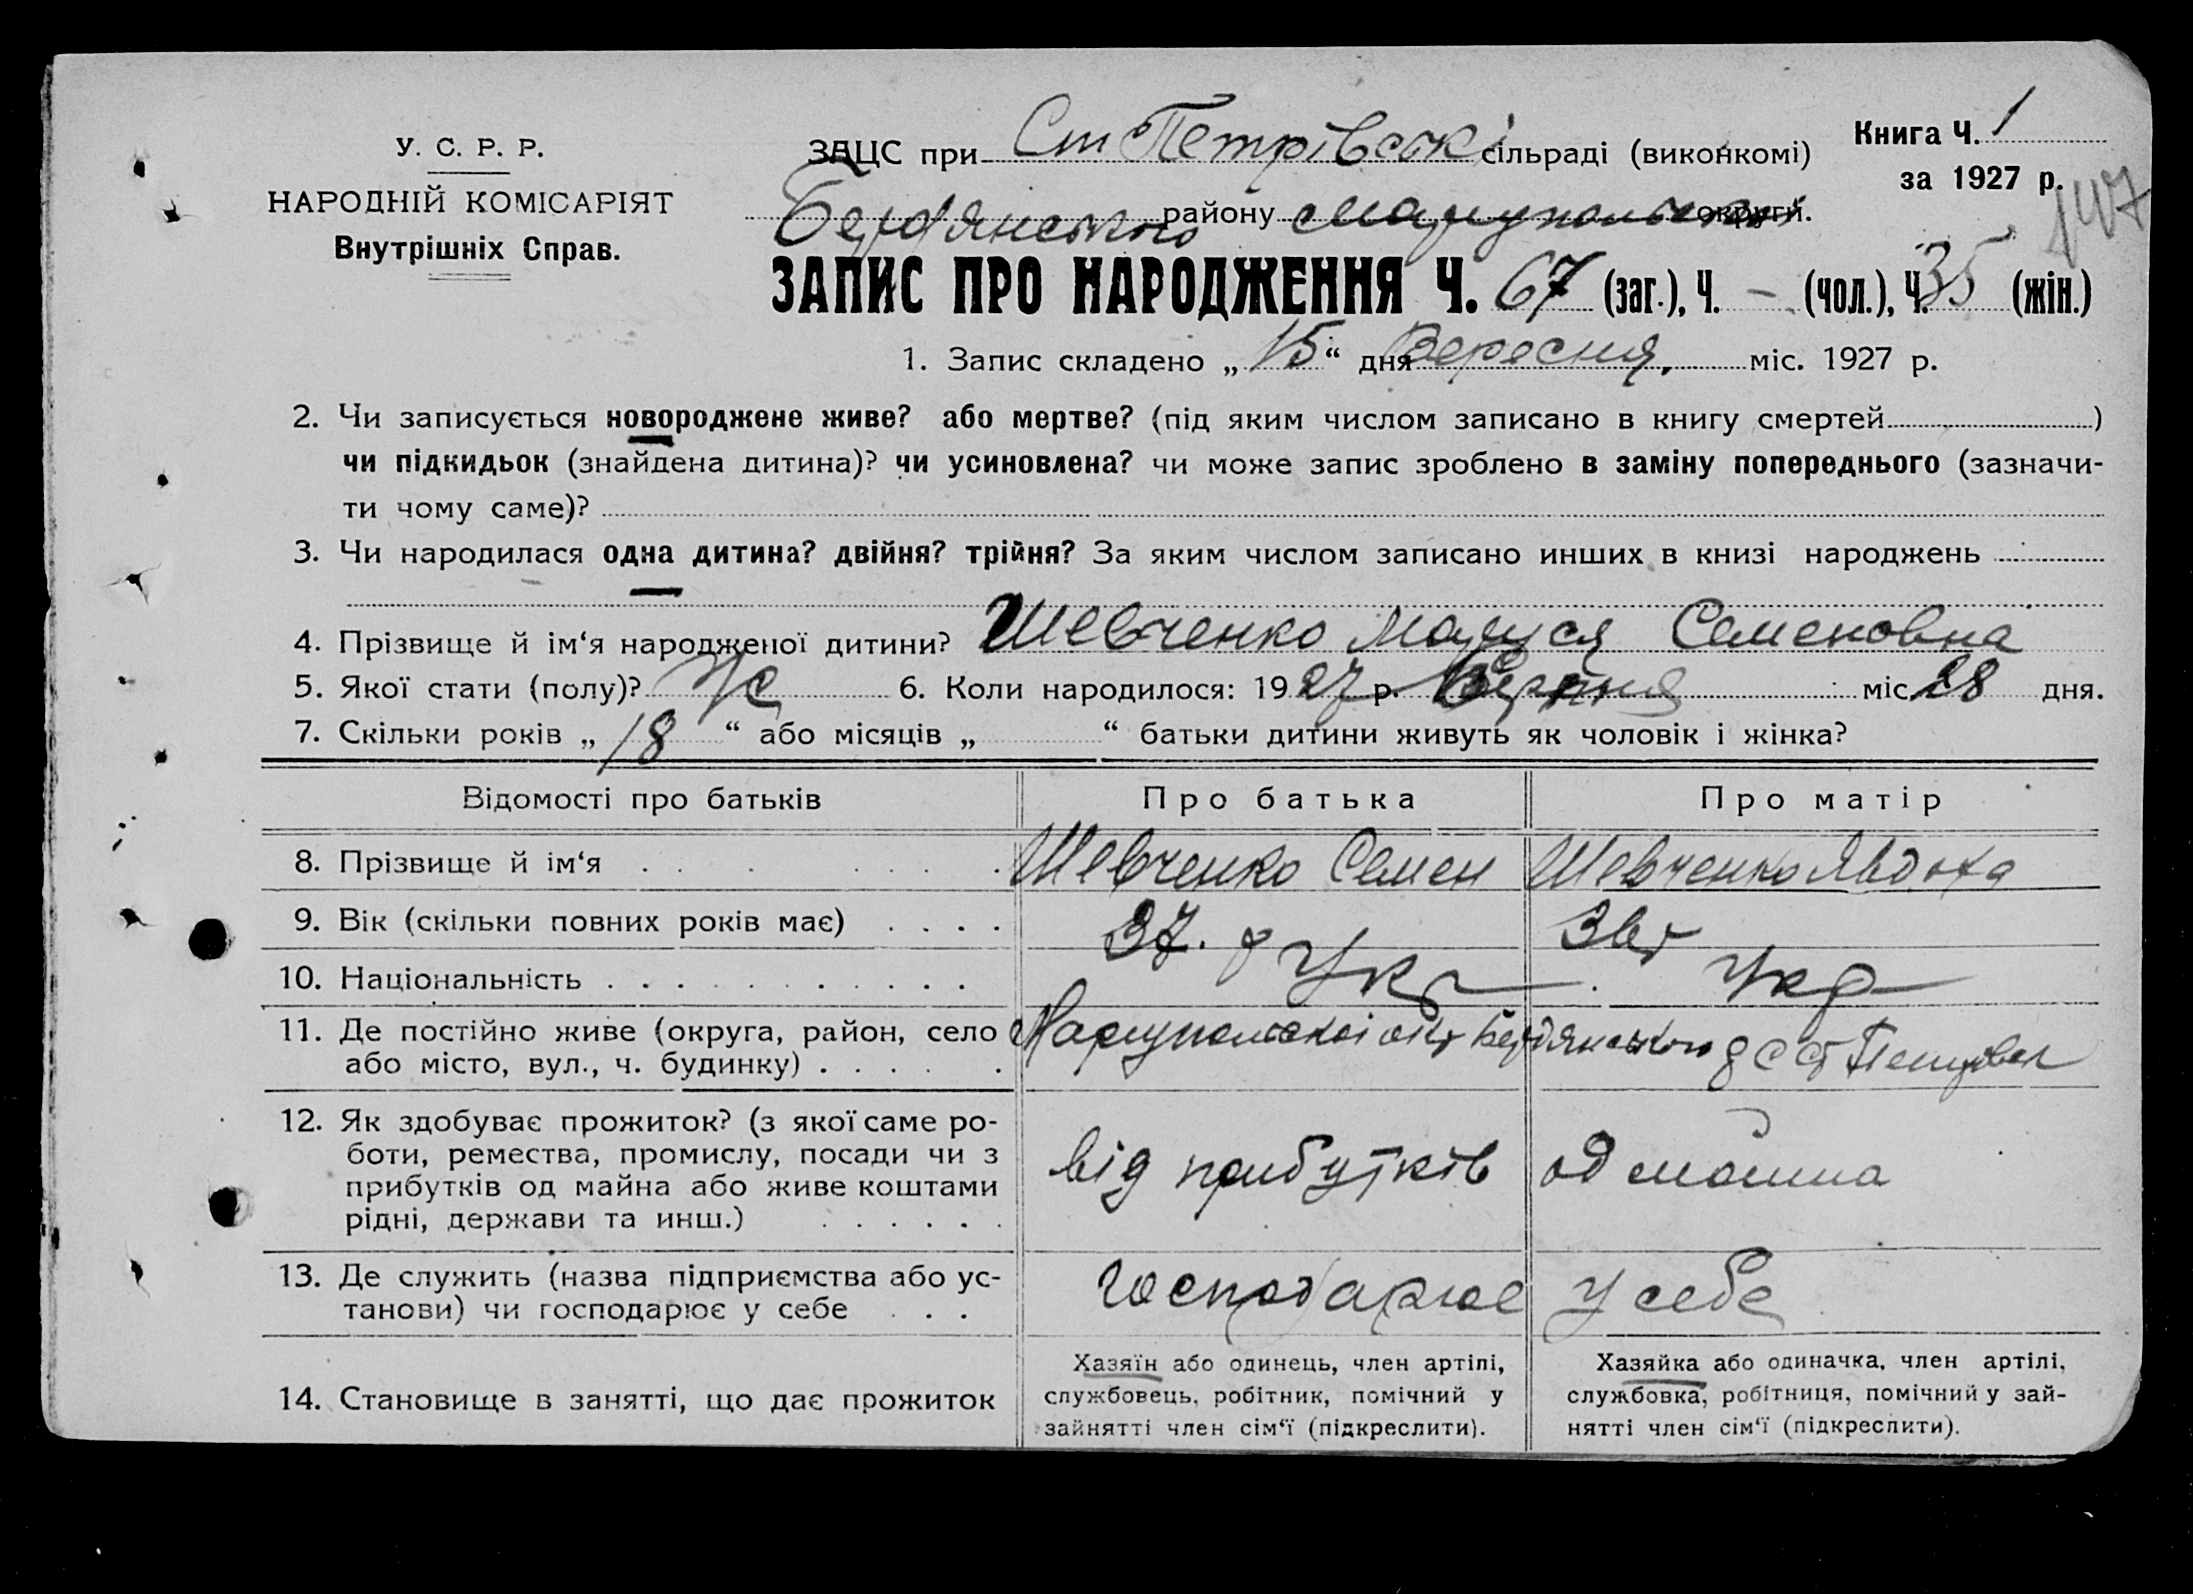 У. С. Р. Р.
НАРОДНІЙ КОМІСАРІЯТ
Внутрішніх Справ.
ЗАЦС при Ст Петрівські сільраді (виконкомі)
Книга Ч. 1
за 1927 р.
147
Бердянського району Маріупольської округи.
ЗАПИС ПРО НАРОДЖЕННЯ Ч. 67 (заг.), Ч. – (чол.), Ч. 35 (жін.)
1. Запис складено „ 15 “ дня Вересня, міс. 1927 р.
2. Чи записується новороджене живе? або мертве? (під яким числом записано в книгу смертей )
чи підкидьок (знайдена дитина)? чи усиновлена? чи може запис зроблено в заміну попереднього (зазначи-
ти чому саме)?
3. Чи народилася одна дитина? двійня? трійня? За яким числом записано инших в книзі народжень
4. Прізвище й ім‘я народженої дитини? Шевченко Маруся Семеновна
5. Якої стати (полу)? Ж 6. Коли народилося: 1927 р. Серпня міс. 28 дня.
7. Скільки років „ 18 “ або місяців „ “ батьки дитини живуть як чоловік і жінка?
Відомості про батьків Про батька Про матір
8. Прізвище й ім‘я Шевченко Семен Шевченко Явдоха
9. Вік (скільки повних років має) 37. р
10. Національність Укр Укр
11. Де постійно живе (округа, район, село Маріупольскої окр Бердянського р с Ст Петровка
або місто, вул., ч. будинку)
12. Як здобуває прожиток? (з якої саме ро-
боти, ремества, промислу, посади чи з
прибутків од майна або живе коштами
рідні, держави та инш.)
від прибутків од маина
13. Де служить (назва підприємства або ус-
танови) чи господарює у себе
господарює у себе
14. Становище в занятті, що дає прожиток
Хазяїн або одинець, член артілі,
службовець, робітник, помічний у
зайнятті член сім‘ї (підкреслити).
Хазяйка або одиначка, член артілі,
службовка, робітниця, помічний у зай-
нятті член сім‘ї (підкреслити).